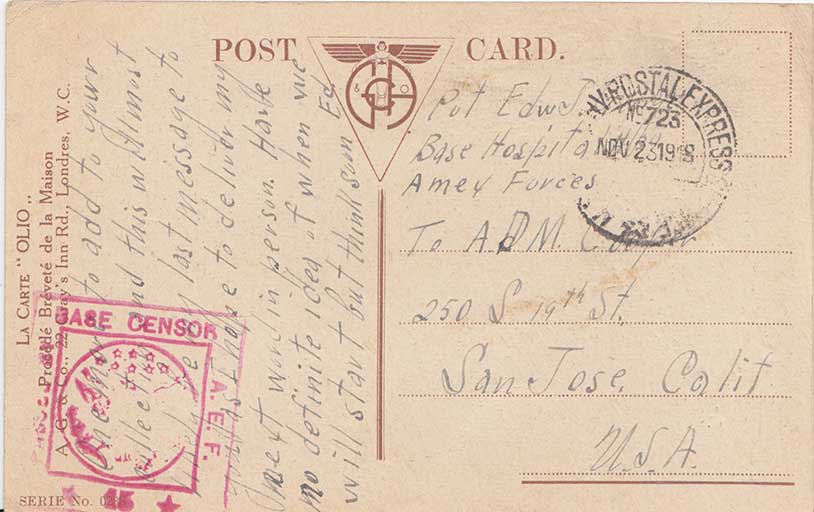 POST CARD.
LA CARTE "OLIO"
Procédé Bréveté de la Maison
A. G. & Co., 22 Gray's Inn Rd., Londres, W.C.
SERIE No.
One more to add to your
collection and this will most
likely be my last message to
you as I hope to deliver my
next word in person. Have
no definite idea of when we
will start but think soon Ed
BASE CENSOR
A.E.F.
PASSED
Pvt Edw J.
Base Hospital
Amex Forces
POSTAL EXPRESS
No 723
NOV 23 1918
To A D M
250 S 19th St.
San Jose, Calif
U.S.A.